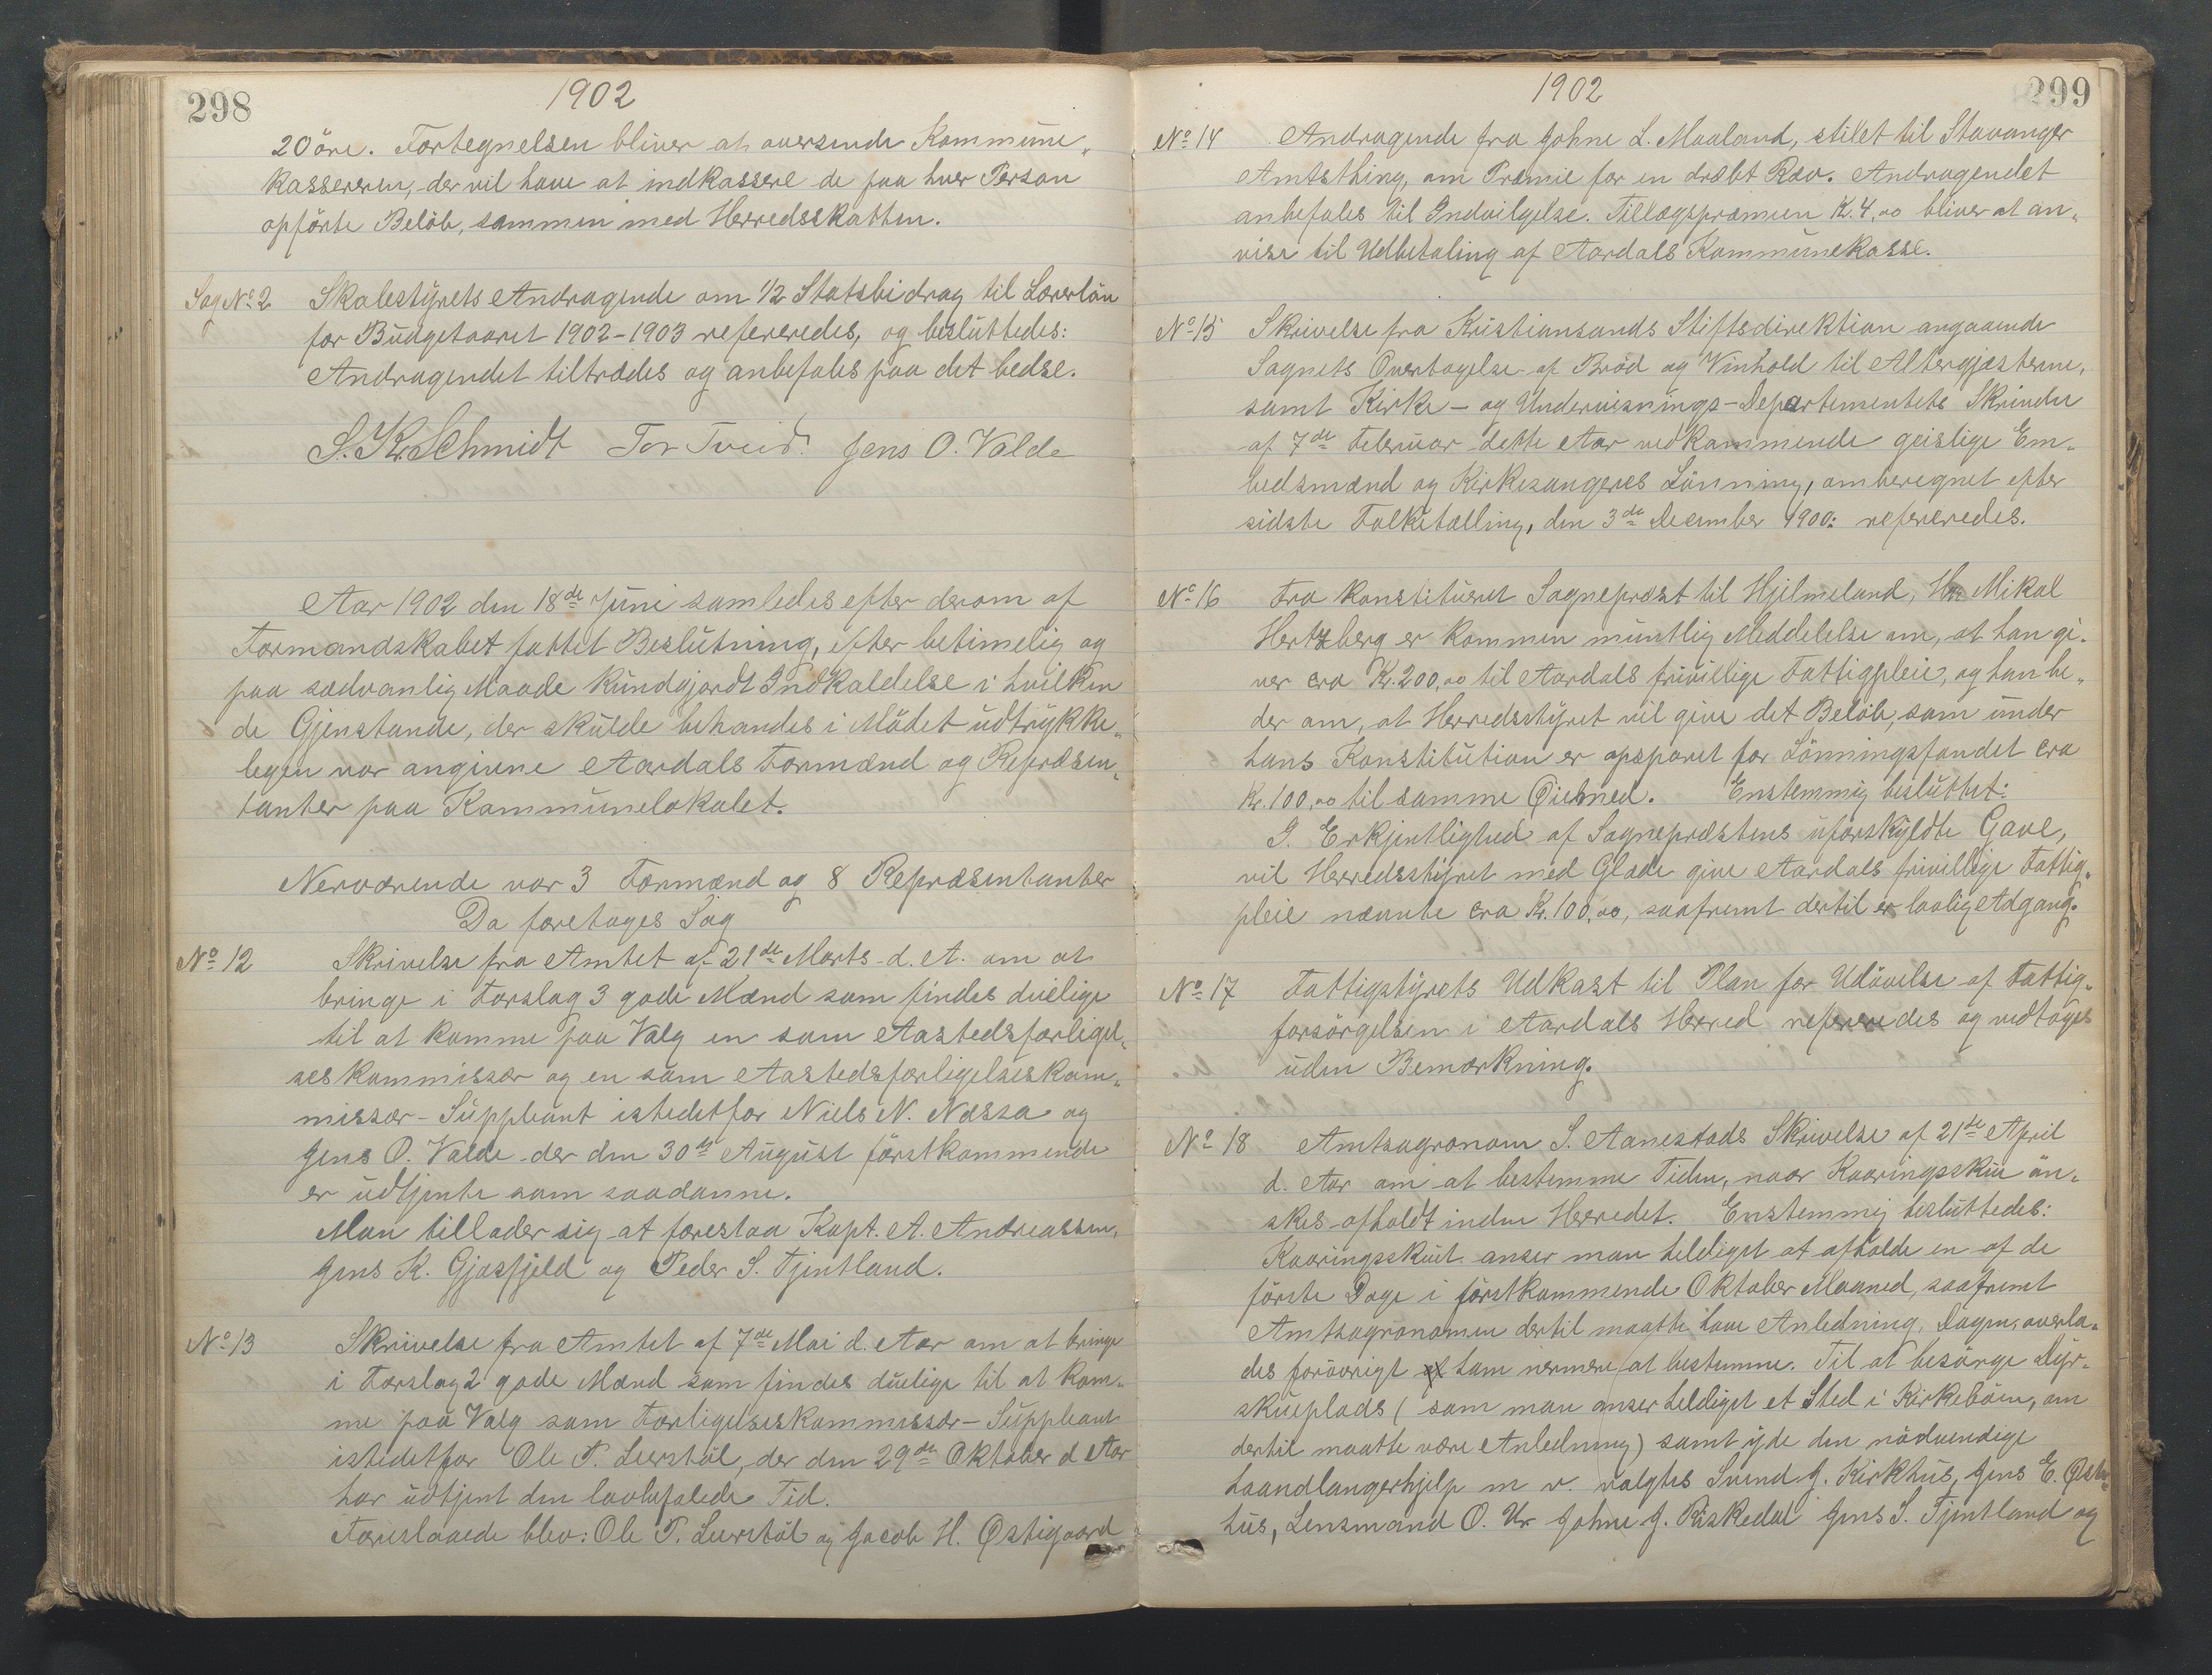 298
1902
20 öre. Fortegnelsen bliver at oversende Kommune„
kassereren, der vil have at indkassere de paa hver Person
opförte Belöb, sammen med Herredsskatten.
Sag No 2 Skolestyrets Andragende om 1/2 Statsbidrag til Lærerlön
for Budgetaaret 1902-1903 refereredes, og besluttedes:
Andragendet tiltrædes og anbefales paa det bedse.
S. Kr. Schmidt Tor Tveid. Jens O. Valde
Aar 1902 den 18de Juni samledes efter derom af
Formandskabet fattet Beslutning, efter betimelig og
paa sædvanlig Maade kundgjordt Indkaldelse i hvilken
de Gjenstande, der skulde behandes i Mödet udtrykke„
legen var angivne Aardals Formænd og Repræsen„
tanter paa Kommunelokalet.
Nerværende var 3 Formænd og 8 Repræsentanter
Da foretoges Sag
No 12 Skrivelse fra Amtet af 21de Marts d. A. om at
bringe i Forslag 3 gode Mænd som findes duelige
til at komme paa Valg en som Aastedsforligel„
ses kommissær og en som Aastedsforligelseskom„
missær-Suppleant istedetfor Niels N. Nessa og
Jens O. Valde der den 30te August förstkommende
er udtjente som saadanne.
Man tillader sig at foreslaa Kapt. A. Andreassen,
Jens K. Gjosfjeld og Peder S. Tjentland.
No 13 Skrivelse fra Amtet af 7de Mai d. Aar om at bringe
i Forslag 2 gode Mænd som findes duelige til at kom„
me paa Valg som Forligelseskommissær-Suppleant
istedetfor Ole T. Leerstöl, der den 29de Oktober d Aar
har udtjent den lovbefalede Tid.
Foreslaaede blev: Ole T. Leerstöl og Jacob H. Østigaard
299
1902
No 14 Andragende fra Johne L. Maaland, stilet til Stavanger
Amtsthing, om Præmie for en dræbt Ræv. Andragendet
anbefales til Indvilgelse. Tillægspræmien K. 4,00 bliver at an„
vise til Udbetaling af Aardals Kommunekasse.
No 15 Skrivelse fra Kristiansands Stiftsdirektion angaaende
Sognets Overtagelse af Bröd og Vinhold til Altergjæsterne,
samt Kirke- og Undervisnings-Departementets Skrivelse
af 7de Februar dette Aar vedkommende geistlige Em„
bedsmænd og Kirkesangeres Lönning, omberegnet efter
sidste Folketælling, den 3de December 1900: refereredes.
No 16 Fra konstitueret Sogneprest til Hjelmeland, Hr Mikal
Hertzberg er kommen muntlig Meddelelse om, at han gi„
ver cra Kr. 200,00 til Aardals frivillige Fattigpleie, og han be„
der om, at Herredsstyret vil give det Belöb, som under
hans Konstitution er opsparet for Lönningsfondet cra
Kr. 100,00 til samme Øiemed. Enstemmig besluttet:
I Erkjentlighed af Sogneprestens uforskyldte Gave,
vil Herredsstyret med Glæde give Aardals frivillige Fattig„
pleie nævnte cra Kr. 100,00, saafremt dertil er lovlig Adgang.
No 17 Fattigstyrets Udkast til Plan for Udövelse af Fattig„
forsörgelsen i Aardals Herred refereredes og vedtoges
uden Bemærkning.
No 18 Amtsagronom S. Aanestads Skrivelse af 21de April
d. Aar om at bestemme Tiden, naar Kaaringsskue ön„
skes afholdt inden Herredet. Enstemmig besluttedes:
Kaaringsskuet anser man heldigst at afholde en af de
förste Dage i förstkommende Oktober Maaned, saafremt
Amtsagronomen dertil maatte have Anledning. Dagen overla„
des forövrigt ham nærmere at bestemme. Til at besörge Dyr„
skueplads (som man anser heldigst et Sted i Kirkeböen, om
dertil maatte være Anledning) samt yde den nödvendige
haandlangerhjelp m v. valgtes Svend J. Kirkhus, Jens E. Øste„
hus, Lensmand O. Ur Johne J. Riskedal Jens S. Tjentland og